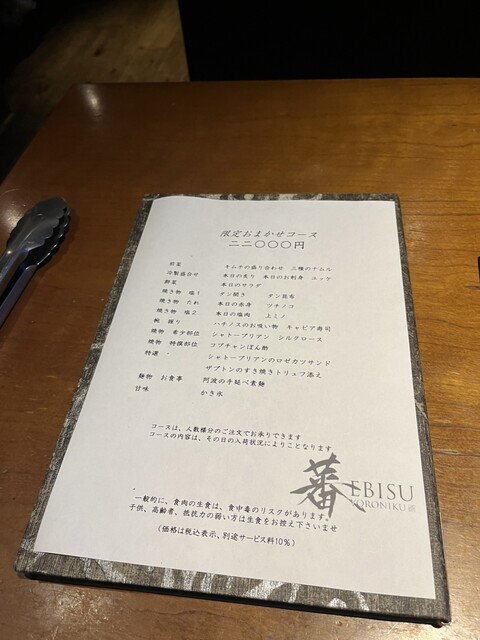 限定おまかせコース
二二〇〇〇円
前菜 キムチの盛り合わせ 三種のナムル
冷製盛合せ 本日の炙り 本日のお刺身 ユッケ
野菜 本日のサラダ
焼き物 塩1 タン開き タン昆布
焼き物 たれ 本日の赤身 ツチノコ
焼き物 塩2 本日の塩肉 上ミノ
椀 握り ハチノスのお吸い物 キャビア寿司
焼物 希少部位 シャトーブリアン シルクロース
焼物 特撰部位 コプチャンぽん酢
特選 シャトーブリアンのロゼカツサンド
ザブトンのすき焼きトリュフ添え
麺物 お食事 阿波の手延べ素麺
甘味 かき氷
コースは、人数様分のご注文でお承りできます
コースの内容は、その日の入荷状況によりことなります
蕃 EBISU
YORONIKU
一般的に、食肉の生食は、食中毒のリスクがあります。
子供、高齢者、抵抗力の弱い方は生食をお控え下さいませ
(価格は税込表示、別途サービス料10%)